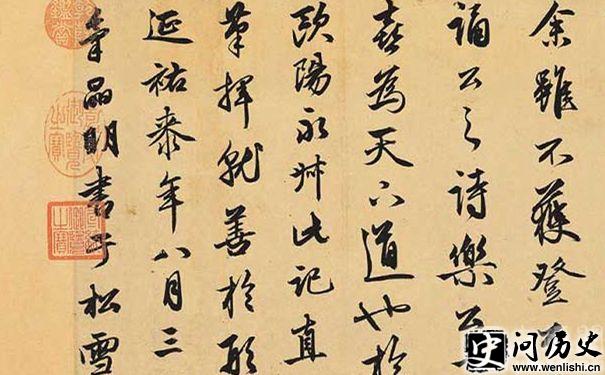 余雖不獲登
誦公之詩樂公
喜為天下道也於
歐陽永叔此記直
筆揮就善於形
延祐泰年八月三
晶明書于松雪
史
问历史
www.wenlishi.cn